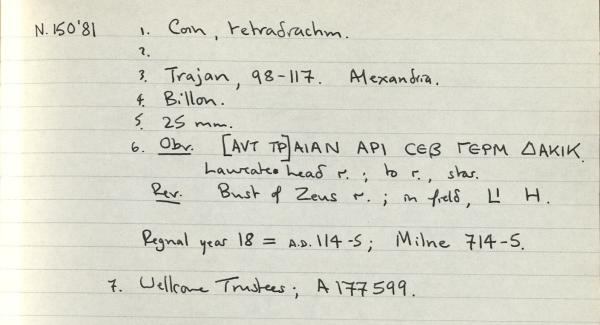 N. 150'81 1. Coin, tetradrachm.
2.
3. Trajan, 98-117. Alexandria.
4. Billon.
5. 25 mm.
6. Obv. [ΑVΤ ΤΡ]ΑΙΑΝ ΑΡΙ CЄΒ ΓΕΡΜ ΔΑΚΙΚ
Laureate head r.; to r., star.
Rev. Bust of Zeus r.; in field, L' H.
Regnal year 18 = A.D. 114-5; Milne 714-5.
7. Wellcome Trustees; A177599.